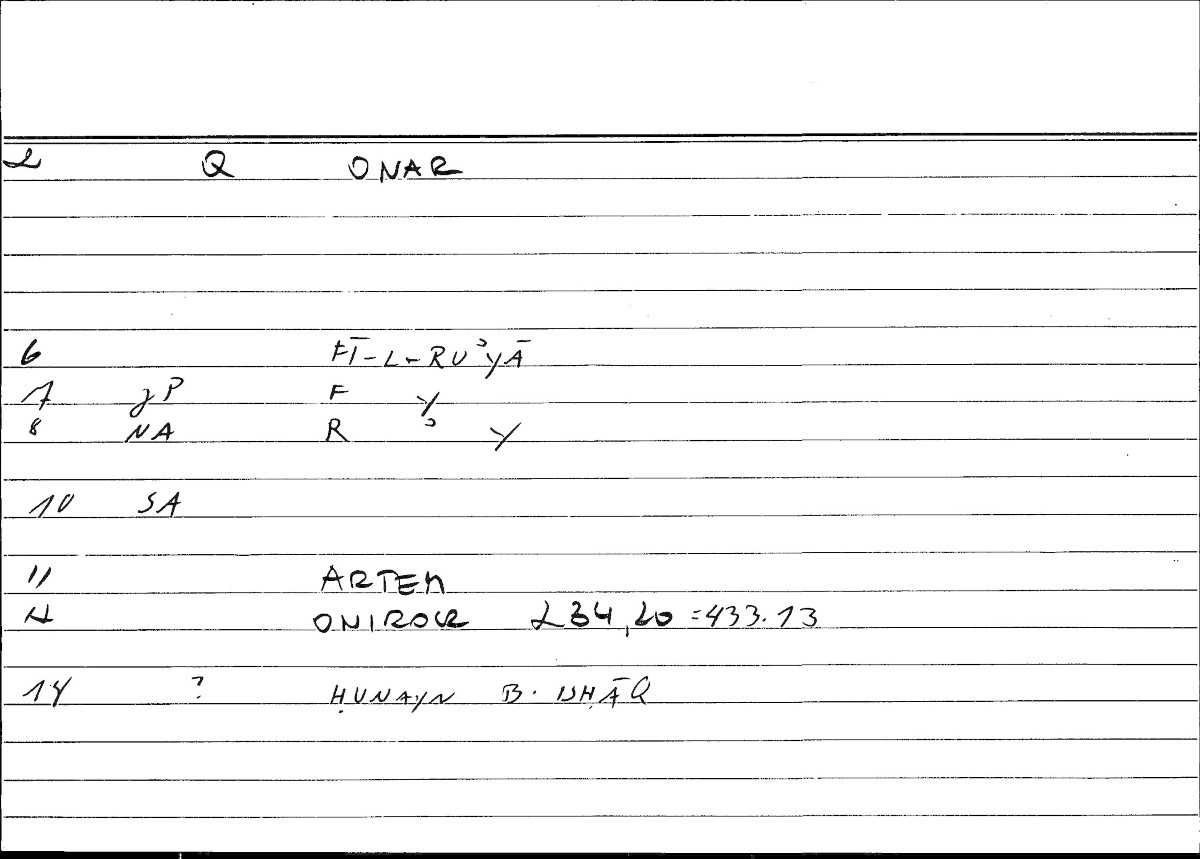 2 Q ONAR
6 FĪ-L-RUʾYĀ
7 gP F Y
8 NA R ʾ Y
10 SA
11 ARTEM
12 ONIROCR 234,20 =433.13
14 ? ḤUNAYN B. ISḤĀQ